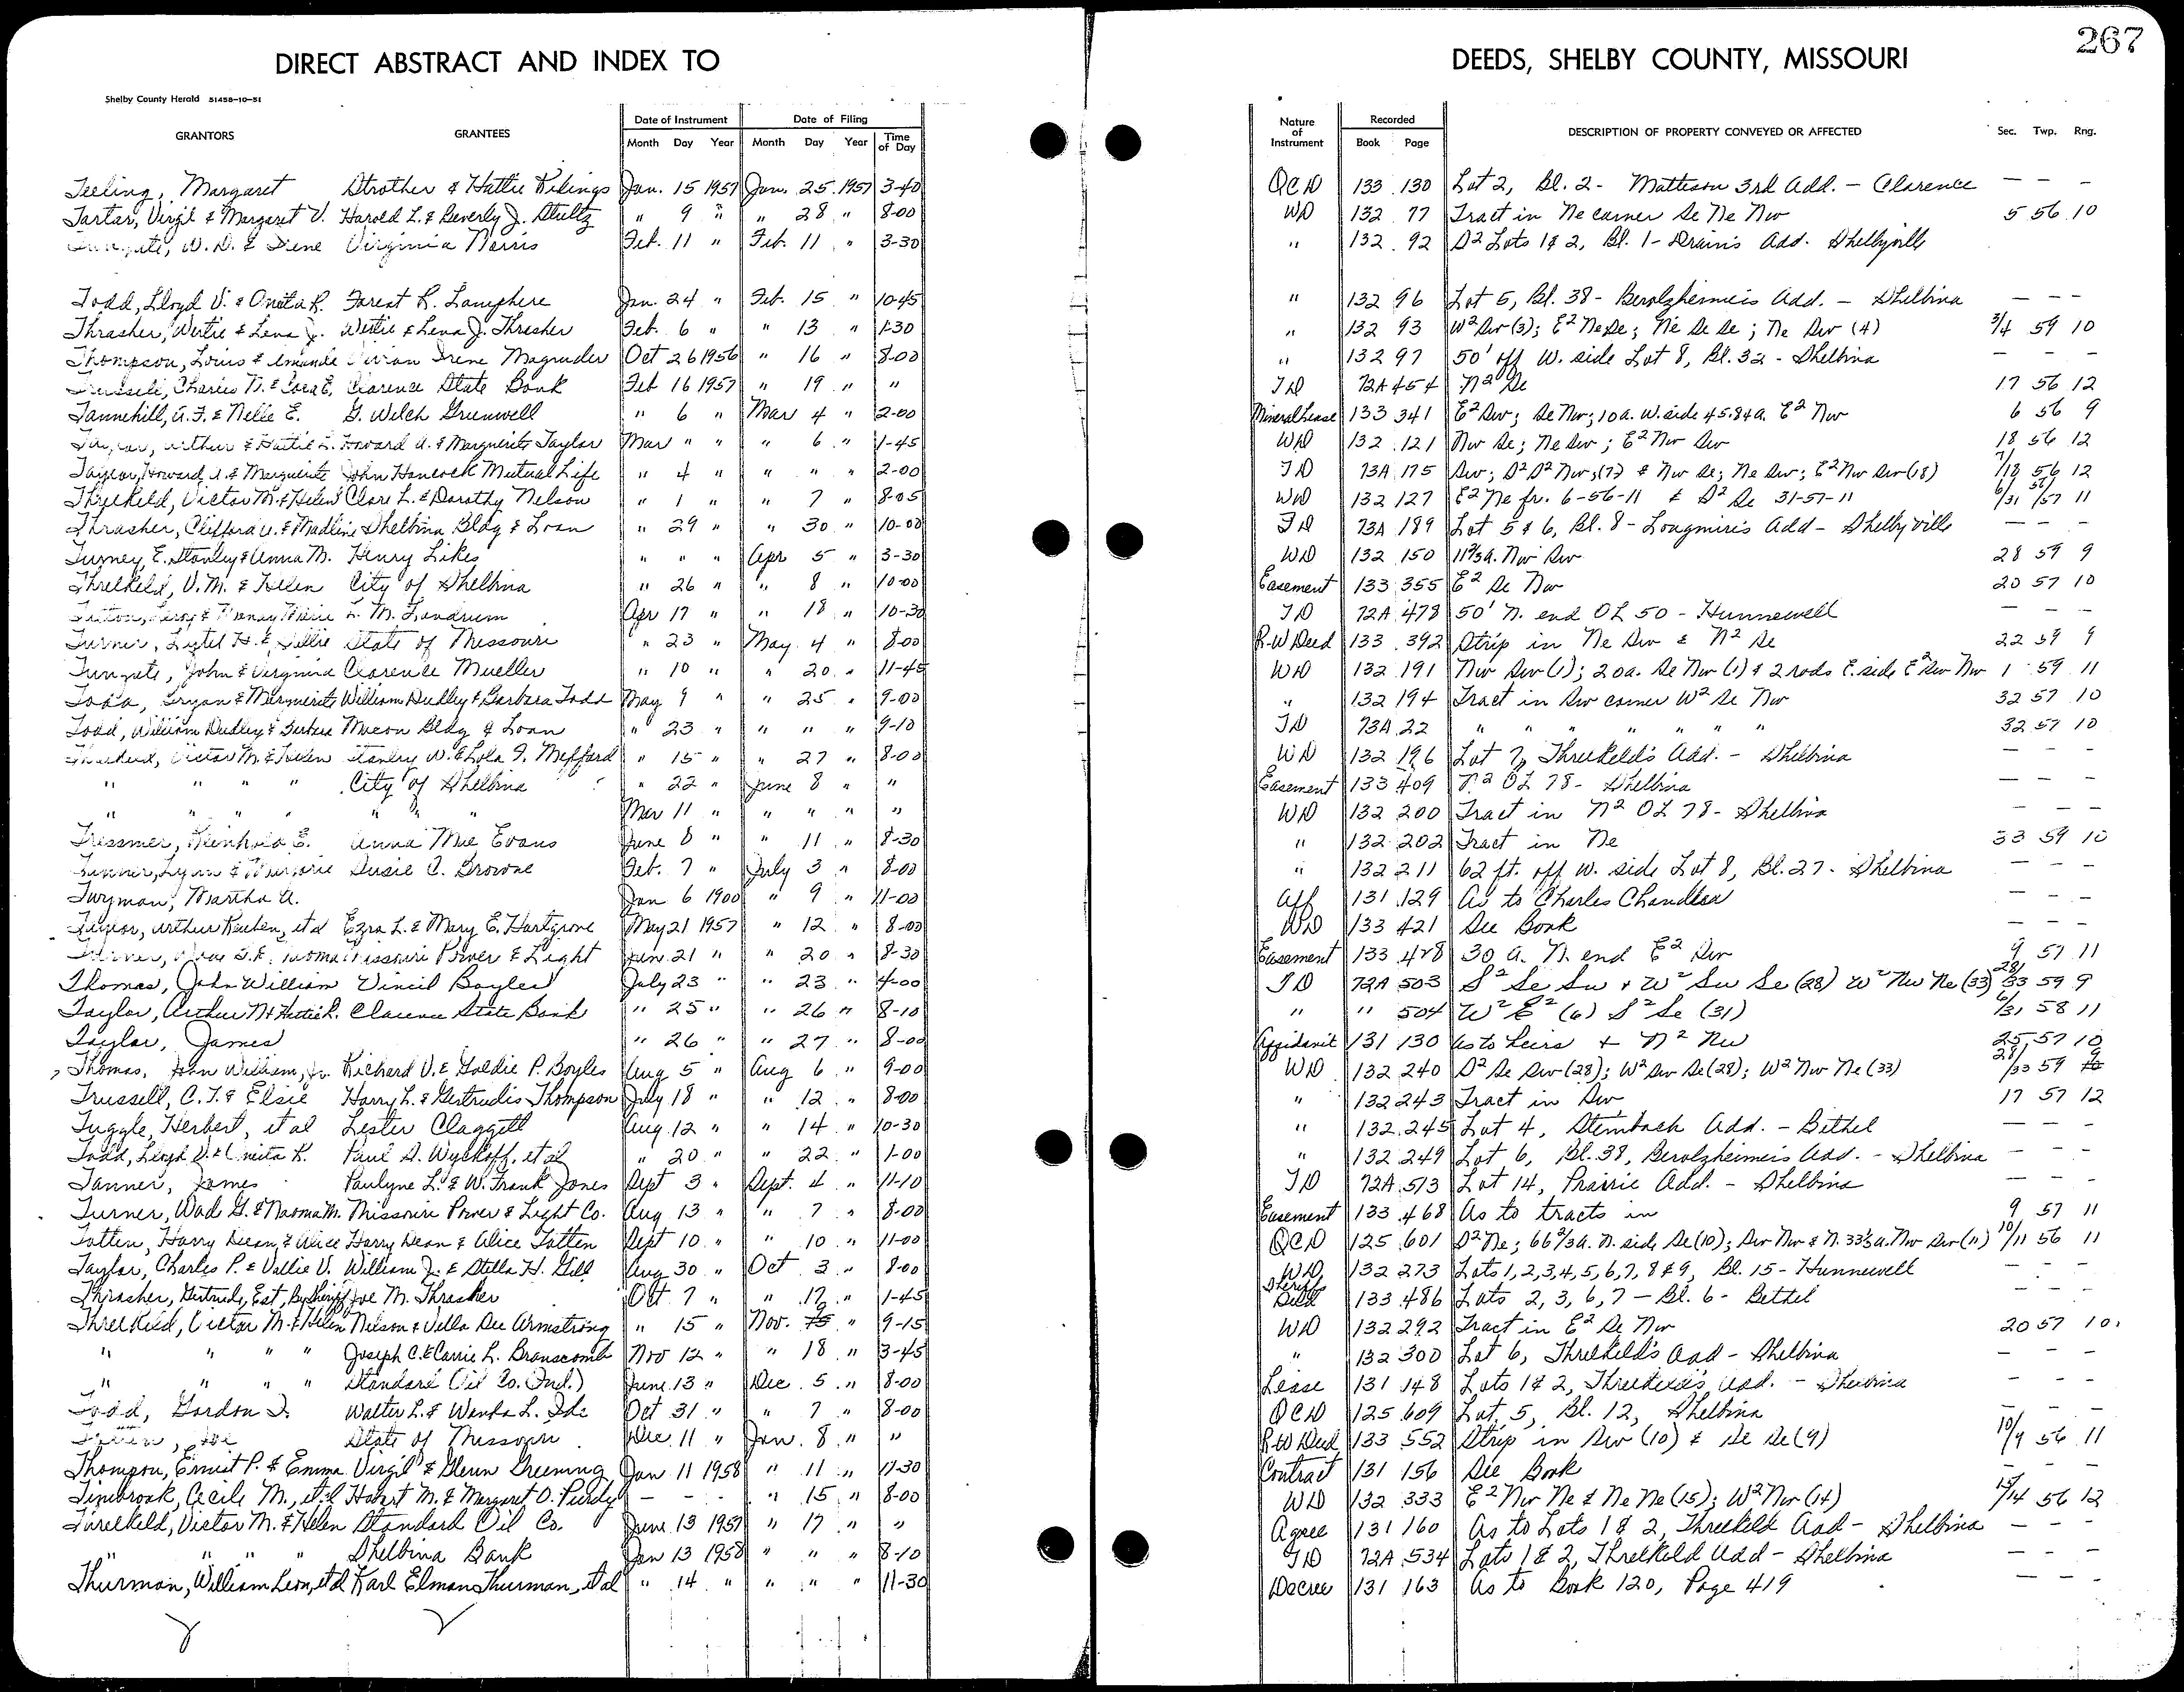 267
DIRECT ABSTRACT AND INDEX TO DEEDS, SHELBY COUNTY, MISSOURI
Shelby County Herald 51458-10-51
GRANTORS GRANTEES Date of Instrument Month Day Year Date of Filing Month Day Year Time of Day Nature of Instrument Recorded Book Page DESCRIPTION OF PROPERTY CONVEYED OR AFFECTED Sec. Twp. Rng.
Teeling, Margaret Strother & Hattie Ridings Jan. 15 1957 Jan. 25 1957 3-40 QCD 133 130 Lot 2, Bl. 2 - Mattison 3rd Add. - Clarence — — —
Tartar, Virgil & Margaret V. Harold L. & Beverly J. Stultz " 9 " " 28 " 8-00 WD 132 77 Tract in Ne corner Se Ne Nw 5 56 10
W. D. & Irene Virginia Norris Feb. 11 " Feb. 11 " 3-30 " 132 92 S2 Lots 1 & 2, Bl. 1 - Drain's Add. Shelbyville
Todd, Lloyd V. & Oneta R. Forest R. Lamphere Jan. 24 " Feb. 15 " 10-45 " 132 96 Lot 5, Bl. 38 - Berolzheimer's Add. - Shelbina — — —
Thrasher, Wertie & Lena J. Wertie & Lena J. Thrasher Feb. 6 " " 13 " 1-30 " 132 93 W2 Sw (3); E2 Ne Se; Ne Se Se; Ne Sw (4) 3/4 59 10
Thompson, Louis & Amanda Irene Magruder Oct 26 1956 " 16 " 8-00 " 132 97 50' off W. side Lot 8, Bl. 32 - Shelbina — — —
Charles Clarence State Bank Feb 16 1957 " 19 " " TD 72A 454 N2 Se 17 56 12
Tannehill, A. F. & Nelle E. G. Welch Greenwell " 6 " Mar 4 " 2-00 Mineral Lease 133 341 E2 Sw; Se Nw; 10a. W. side 45.84a. E2 Nw 6 56 9
Taylor, Arthur & Hattie L. Howard A. & Marguerite Taylor Mar " " " 6 " 1-45 WD 132 121 Nw Se; Ne Sw; E2 Nw Sw 18 56 12
Taylor, Howard A. & Marguerite John Hancock Mutual Life " 4 " " " " 2-00 TD 73A 175 Sw; S2 S2 Nw; (7) & Nw Se; Ne Sw; E2 Nw Sw (18) 7/18 56 12
Threlkeld, Victor M. & Helen Clare L. & Dorothy Nelson " 1 " " 7 " 8-05 WD 132 127 E2 Ne fr. 6-56-11 & S2 Se 31-57-11 6/31 56/57 11
Thrasher, Clifford V. & Madline Shelbina Bldg & Loan " 29 " " 30 " 10-00 TD 73A 189 Lot 5 & 6, Bl. 8 - Longmire's Add - Shelbyville — — —
Turney, E. Stanley & Anna M. Henry Likes " " " Apr 5 " 3-30 WD 132 150 Nw Sw 28 59 9
Threlkeld, V. M. & Helen City of Shelbina " 26 " " 8 " 10-00 Easement 133 355 E2 Se Nw 20 57 10
L. M. Landrum Apr 17 " " 18 " 10-30 TD 72A 478 50' N. end OL 50 - Hunnewell — — —
Turner, Lytel H. & Lillie State of Missouri " 23 " May 4 " 8-00 R-W Deed 133 392 Strip in Ne Sw & N2 Se 22 59 9
Tungate, John & Virginia Clarence Mueller " 10 " " 20 " 11-45 WD 132 191 Nw Sw (1); 20a. Se Nw (1) & 2 rods E. side E2 Sw Nw 1 59 11
Todd, Bryan & Marguerite William Dudley & Barbara Todd May 9 " " 25 " 9-00 " 132 194 Tract in Sw corner W2 Se Nw 32 57 10
Todd, William Dudley & Barbara Macon Bldg & Loan " 23 " " " " 9-10 TD 73A 22 " " " " " " 32 57 10
Threlkeld, Victor M. & Helen Stanley W. & Lola F. Mefford " 15 " " 27 " 8-00 WD 132 196 Lot 7, Threlkeld's Add. - Shelbina — — —
" " " " City of Shelbina " 22 " June 8 " " Easement 133 409 N2 OL 78 - Shelbina — — —
" " " " " " " Mar 11 " " " " " WD 132 200 Tract in N2 OL 78 - Shelbina — — —
Tressner, Reinhold E. Anna Mae Evans June 8 " " 11 " 8-30 " 132 202 Tract in Ne 33 59 10
Lynn & Marjorie Susie C. Browne Feb. 7 " July 3 " 8-00 " 132 211 62 ft. off W. side Lot 8, Bl. 27 - Shelbina — — —
Twyman, Martha A. Jan 6 1900 " 9 " 11-00 Aff 131 129 As to Charles Chandler — — —
Taylor, Arthur Reuben, et al Ezra L. & Mary E. Hartgrove May 21 1957 " 12 " 8-00 WD 133 421 See Book — — —
Missouri Power & Light Jun. 21 " " 20 " 8-30 Easement 133 428 30 a. N. end E2 Sw 9 57 11
Thomas, John William Vincil Boyles July 23 " " 23 " 4-00 TD 72A 503 S2 Se Sw + W2 Sw Se (28) W2 Nw Ne (33) 28/33 59 9
Taylor, Arthur N. & Hattie L. Clarence State Bank " 25 " " 26 " 8-10 " " 504 W2 E2 (6) S2 Se (31) 6/31 58 11
Taylor, James " 26 " " 27 " 8-00 Affidavit 131 130 As to heirs + N2 Nw 25 57 10
Thomas, John William, Jr. Richard V. & Goldie P. Boyles Aug 5 " Aug 6 " 9-00 WD 132 240 S2 Se Sw (28); W2 Sw Se (28); W2 Nw Ne (33) 28/33 59 9
Trussell, C. T. & Elsie Harry L. & Gertrudis Thompson July 18 " " 12 " 8-00 " 132 243 Tract in Sw 17 57 12
Tuggle, Herbert, et al Lester Claggett Aug. 12 " " 14 " 10-30 " 132 245 Lot 4, Steinbach Add. - Bethel — — —
Todd, Lloyd V. & Oneita R. Paul D. Wyckoff, et al " 20 " " 22 " 1-00 " 132 249 Lot 6, Bl. 38, Berolzheimer's Add. - Shelbina — — —
Tanner, James Paulyne L. & W. Frank Jones Sept 3 " Sept. 4 " 11-10 TD 72A 513 Lot 14, Prairie Add. - Shelbina — — —
Turner, Wade G. & Naoma M. Missouri Power & Light Co. Aug 13 " " 7 " 8-00 Easement 133 468 As to tracts in 9 57 11
Totten, Harry Dean & Alice Harry Dean & Alice Totten Sept 10 " " 10 " 11-00 QCD 125 601 S2 Ne; 66 2/3a. N. side Se (10); Sw Nw & N. 33 1/3a. Nw Sw (11) 10/11 56 11
Taylor, Charles P. & Vallie V. William J. & Stella H. Gill Aug 30 " Oct 3 " 8-00 WD 132 273 Lots 1, 2, 3, 4, 5, 6, 7, 8 & 9, Bl. 15 - Hunnewell — — —
Thrasher, Gertrude, Est, By Sheriff Joe M. Thrasher Oct 7 " " 17 " 1-45 Sheriff Deed 133 486 Lots 2, 3, 6, 7 - Bl. 6 - Bethel — — —
Threlkeld, Victor M. & Helen Nelson & Vella Dee Armstrong " 15 " Nov. " 9-15 WD 132 292 Tract in E2 Se Nw 20 57 10
" " " " Joseph C. & Carrie L. Branscomb Nov 12 " " 18 " 3-45 " 132 300 Lot 6, Threlkeld's Add - Shelbina — — —
" " " " Standard Oil Co. (Ind.) June 13 " Dec. 5 " 8-00 Lease 131 148 Lots 1 & 2, Threlkeld's Add. - Shelbina — — —
Todd, Gordon D. Walter L. & Wanda L. Ide Oct 31 " " 7 " 8-00 QCD 125 609 Lot 5, Bl. 12, Shelbina — — —
State of Missouri Dec. 11 " Jan. 8 " " R-W Deed 133 552 Strip in Sw (10) & Se Se (9) 10/9 56 11
Thompson, Ernest P. & Emma Virgil & Glenn Greening Jan 11 1958 " 11 " 11-30 Contract 131 156 See Book — — —
Timbrook, Cecile M., et al Hobart M. & Margaret O. Purdy — — — " 15 " 8-00 WD 132 333 E2 Nw Ne & Ne Ne (15); W2 Nw (14) 15/14 56 12
Threlkeld, Victor M. & Helen Standard Oil Co. June 13 1957 " 17 " " Agree 131 160 As to Lots 1 & 2, Threlkeld Add - Shelbina — — —
" " " " Shelbina Bank Jan 13 1958 " " " 8-10 TD 72A 534 Lots 1 & 2, Threlkeld Add - Shelbina — — —
Thurman, William Leon, et al Karl Elman Thurman, et al " 14 " " " " 11-30 Decree 131 163 As to Book 120, Page 419 — — —